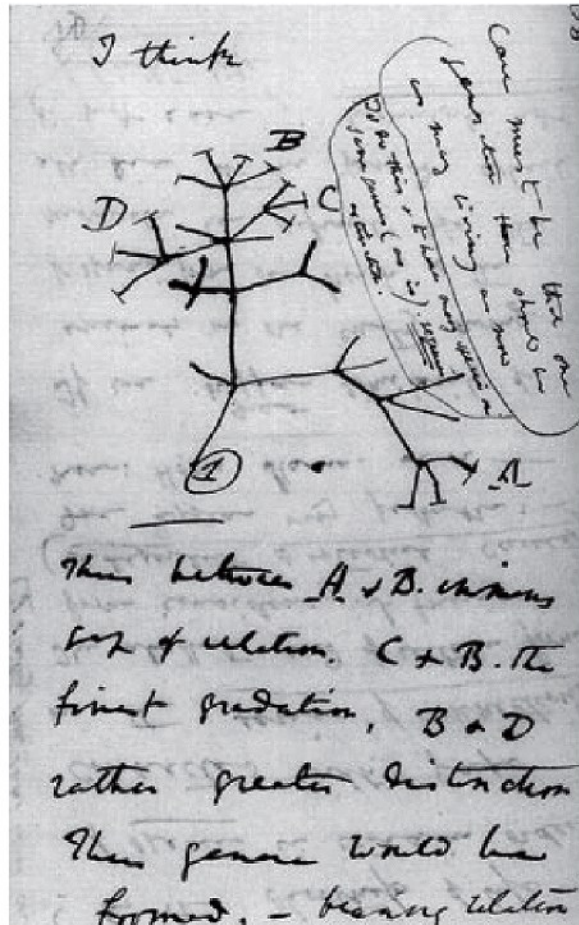 I think
Case must be that one
generation then should be
as many living as now
To do this & to have many species in
same genus (as is). requires
extinction.
B
C
D
A
1
Thus between A & B. immens
gap of relation. C & B. the
finest gradation, B & D
rather greater distinction
Thus genera would be
formed. – bearing relation